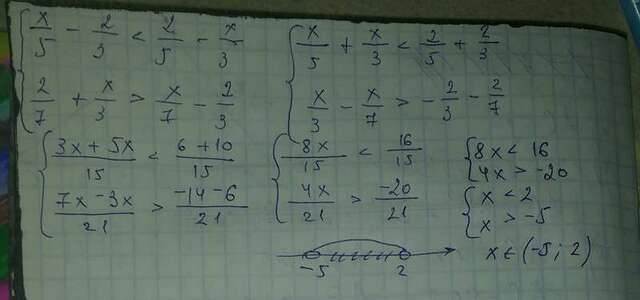 { x/5 - 2/3 < 2/5 - x/3
2/7 + x/3 > x/7 - 2/3
{ x/5 + x/3 < 2/5 + 2/3
x/3 - x/7 > -2/3 - 2/7
{ (3x + 5x)/15 < (6 + 10)/15
(7x - 3x)/21 > (-14 - 6)/21
{ 8x/15 < 16/15
4x/21 > -20/21
{ 8x < 16
4x > -20
{ x < 2
x > -5
-5 2
x ∈ (-5; 2)